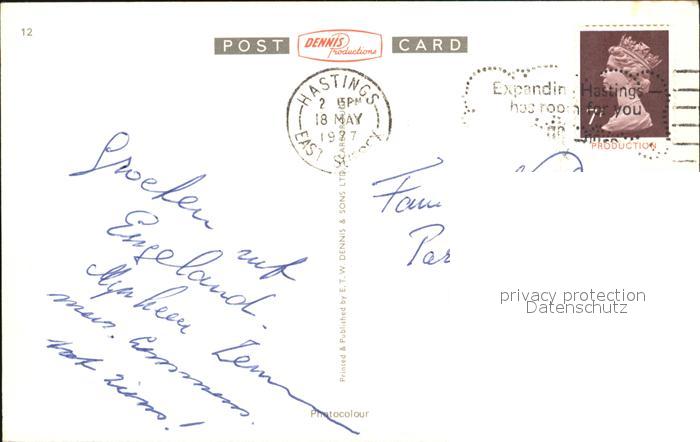 12
POST
DENNIS
Productions
CARD
HASTINGS
2 15PM
18 MAY
1977
EAST SUSSEX
Expandin Hastings
has room for you
7P
PRODUCTION
Groeten uit
Engeland.
Mijnheer
mevr.
tot ziens!
Fam
Par
privacy protection
Datenschutz
Printed & Published by E. T. W. DENNIS & SONS LTD., SCARBOROUGH
Photocolour